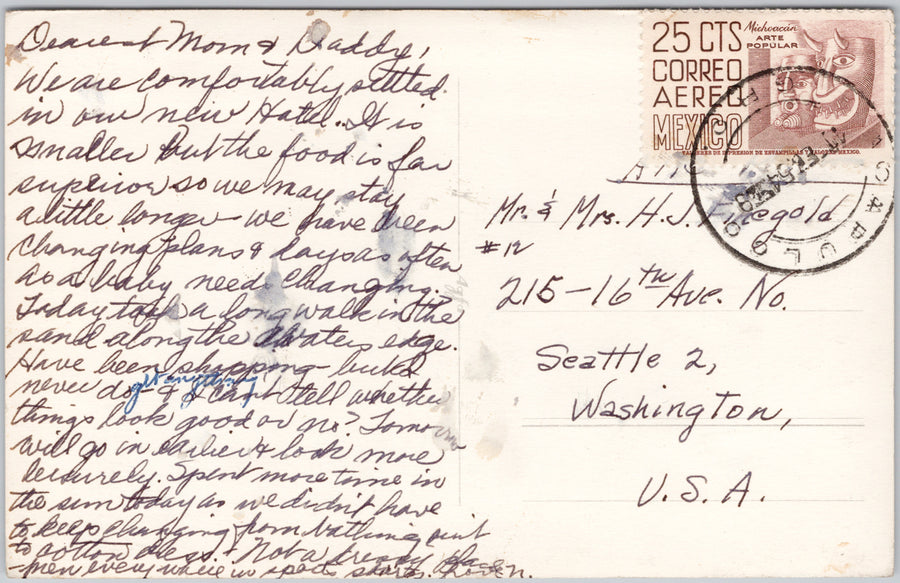 Dearest Mom & Daddy,
We are comfortably settled
in our new Hotel. It is
smaller but the food is far
superior so we may stay
a little longer - we have been
changing plans & days as often
as a baby needs changing.
Today took a long walk in the
sand along the waters edge.
Have been shopping - but I
never do get anything - & I can't tell whether
things look good or no? Tomorrow
will go in earlier & look more
leisurely. Spent more time in
the sun today as we didn't have
to keep changing from bathing suit
to cotton dress. - Not a dressy place
- men every where in sports shirts. Love
25 CTS
CORREO
AEREO
MEXICO
Michoacán
ARTE
POPULAR
TALLERES DE IMPRESION DE ESTAMPILLAS Y VALORES. MEXICO.
ACAPULCO
Mr. & Mrs. H.J.
#12
215-16th Ave. No.
Seattle 2,
Washington,
U.S.A.